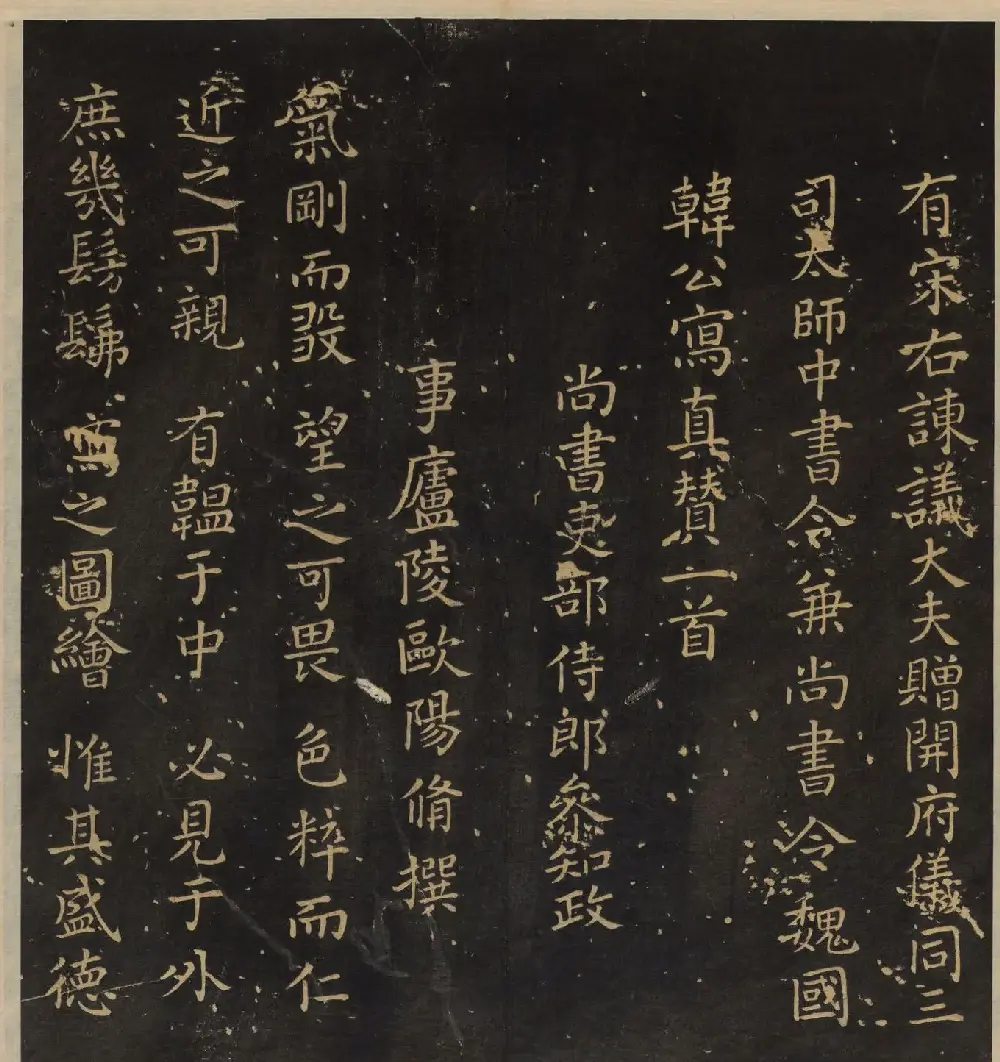 有宋右諫議大夫贈開府儀同三
司太師中書令兼尚書令魏國
韓公寫真贊一首
尚書吏部侍郎參知政
事廬陵歐陽脩撰
氣剛而毅 望之可畏 色粹而仁
近之可親 有韞于中 必見于外
庶幾髣髴 寫之圖繪 惟其盛德